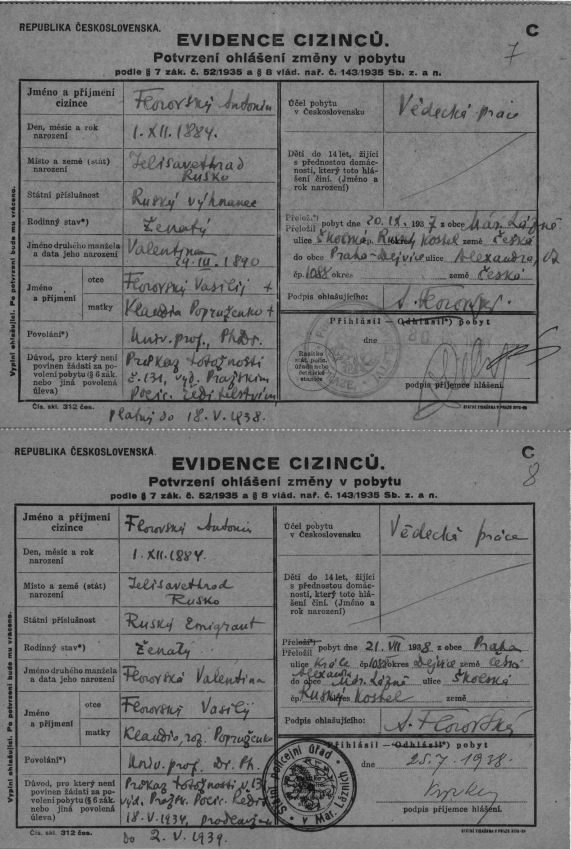 REPUBLIKA ČESKOSLOVENSKÁ.
C
7
EVIDENCE CIZINCŮ.
Potvrzení ohlášení změny v pobytu
podle § 7 zák. č. 52/1935 a § 8 vlád. nař. č. 143/1935 Sb. z. a n.
Vyplní ohlašující. Po potvrzení bude mu vráceno.
Jméno a příjmení cizince
Florovský Antonín
Den, měsíc a rok narození
1. XII. 1884.
Místo a země (stát) narození
Jelisavethrad
Rusko
Státní příslušnost
Ruský výhnanec
Rodinný stav*)
Ženatý
Jméno druhého manžela a data jeho narození
Valentina
29. III. 1890
Jméno a příjmení
otce
Florovský Vasilij +
matky
Klaudia Popruženko +
Povolání*)
Univ. prof., Ph.Dr.
Důvod, pro který není povinen žádati za povolení pobytu (§ 6 zák. nebo jiná povolená úleva)
Průkaz totožnosti
č. 131, vyd. Pražským
Polic. ředitelstvím
platný do 18. V. 1938.
Čís. skl. 312 čes.
Účel pobytu v Československu
Vědecká práce
Děti do 14 let, žijící s přednostou domácnosti, který toto hlášení činí. (Jméno a rok narození)
Přelož.*) pobyt dne 20. IX. 1937 z obce Mar. Lázně
ulice Školská čp. Ruský Kostel země Česká
do obce Praha-Dejvice ulice Alexandra
čp. 1088 okres země Česká
Podpis ohlašujícího:
A. Florovský.
Přihlásil — Odhlásil*) pobyt
dne
Razítko stát. polic. úřadu nebo četnické stanice
podpis příjemce hlášení.
STÁTNÍ TISKÁRNA V PRAZE
REPUBLIKA ČESKOSLOVENSKÁ
C
8
EVIDENCE CIZINCŮ.
Potvrzení ohlášení změny v pobytu
podle § 7 zák. č. 52/1935 a § 8 vlád. nař. č. 143/1935 Sb. z. a n.
Vyplní ohlašující. Po potvrzení bude mu vráceno.
Jméno a příjmení cizince
Florovský Antonín
Den, měsíc a rok narození
1. XII. 1884.
Místo a země (stát) narození
Jelisavethrod
Rusko
Státní příslušnost
Ruský Emigrant
Rodinný stav*)
Ženatý
Jméno druhého manžela a data jeho narození
Florovská Valentina
Jméno a příjmení
otce
Florovský Vasilij
matky
Klaudia, roz. Popruženko
Povolání*)
Univ. prof. Dr. Ph.
Důvod, pro který není povinen žádati za povolení pobytu (§ 6 zák. nebo jiná povolená úleva)
Průkaz totožnosti č. 131
vyd. Pražsk. Polic. Ředit.
18. V. 1934, prodloužen
do 2. V. 1939.
Čís. skl. 312 čes.
Účel pobytu v Československu
Vědecká práce
Děti do 14 let, žijící s přednostou domácnosti, který toto hlášení činí. (Jméno a rok narození)
Přeložil*) pobyt dne 21. VII 1938 z obce Praha
ulice Krále Alexandra čp. 1088 okres Dejvice země Česká
do obce Mar. Lázně ulice Školská
čp. Ruský Kostel země
Podpis ohlašujícího:
A. Florovský
Přihlásil — Odhlásil*) pobyt
dne 25.7.1938.
Státní policejní úřad
v Mar. Lázních
podpis příjemce hlášení.
STÁTNÍ TISKÁRNA V PRAZE